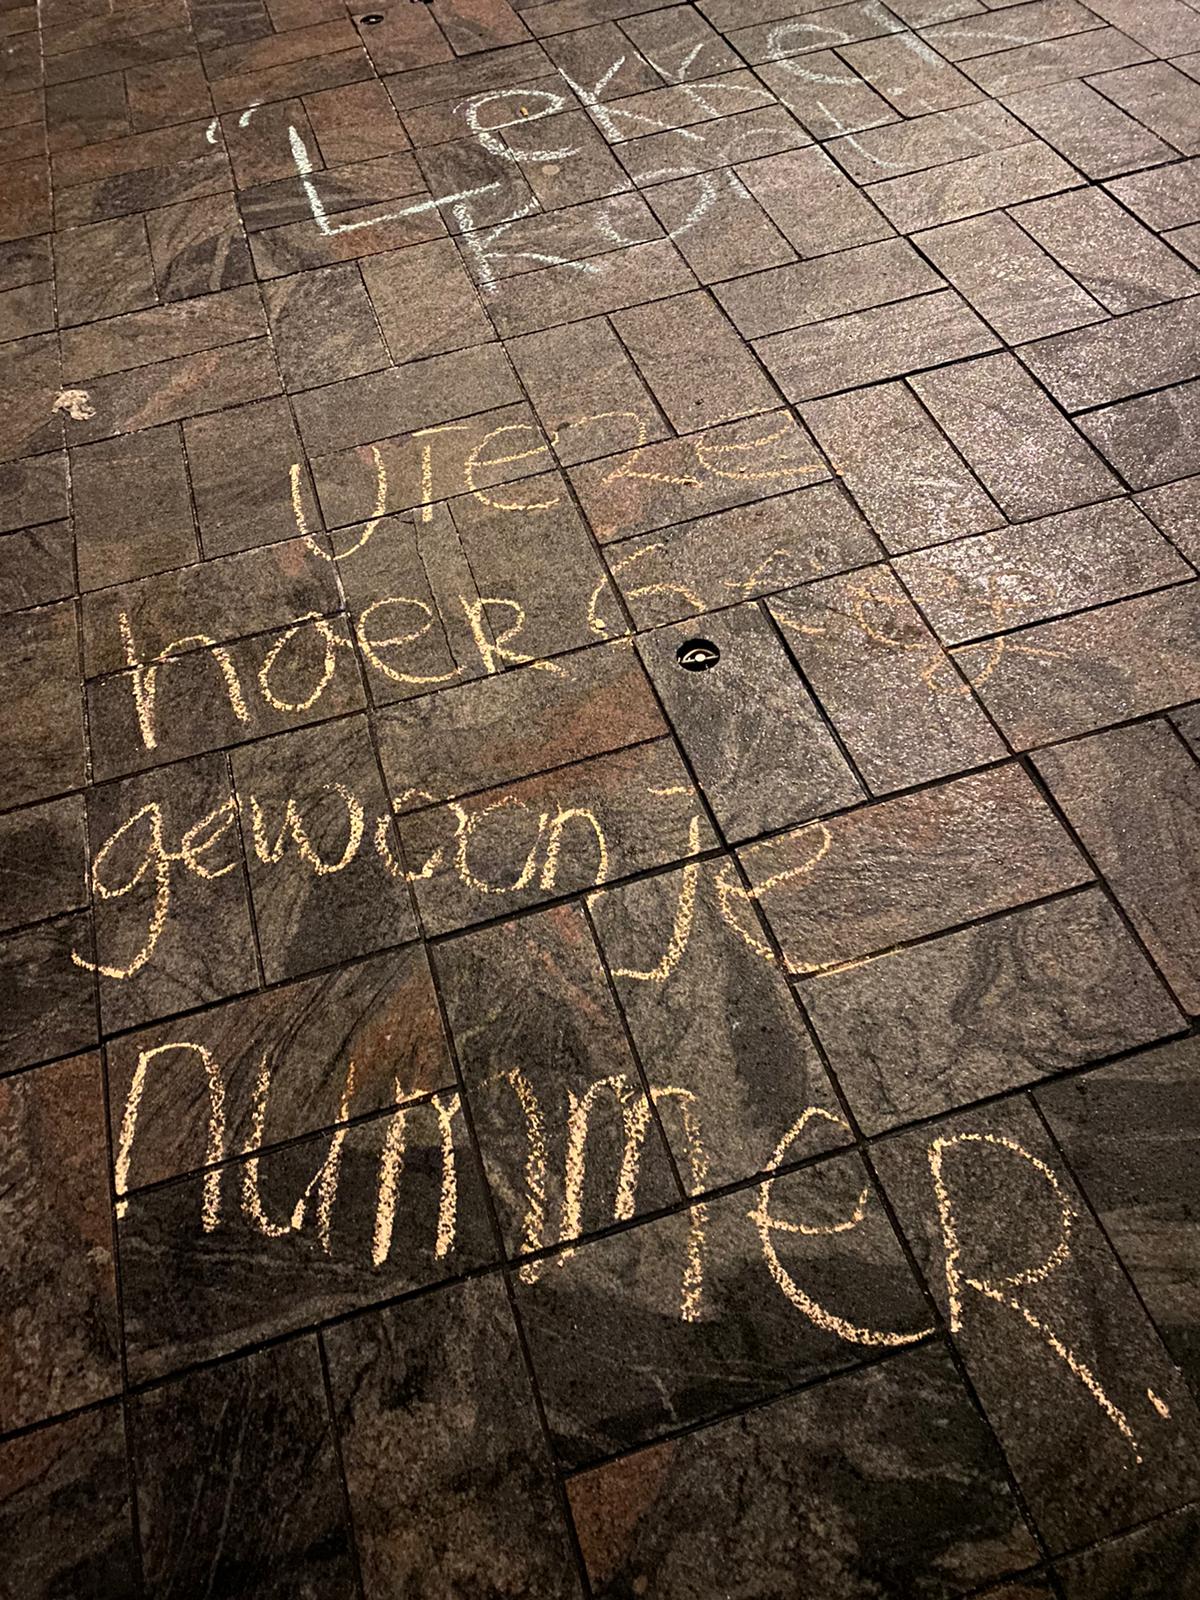 "Lekker
vieze
hoer Geef
gewoon je
nummer.